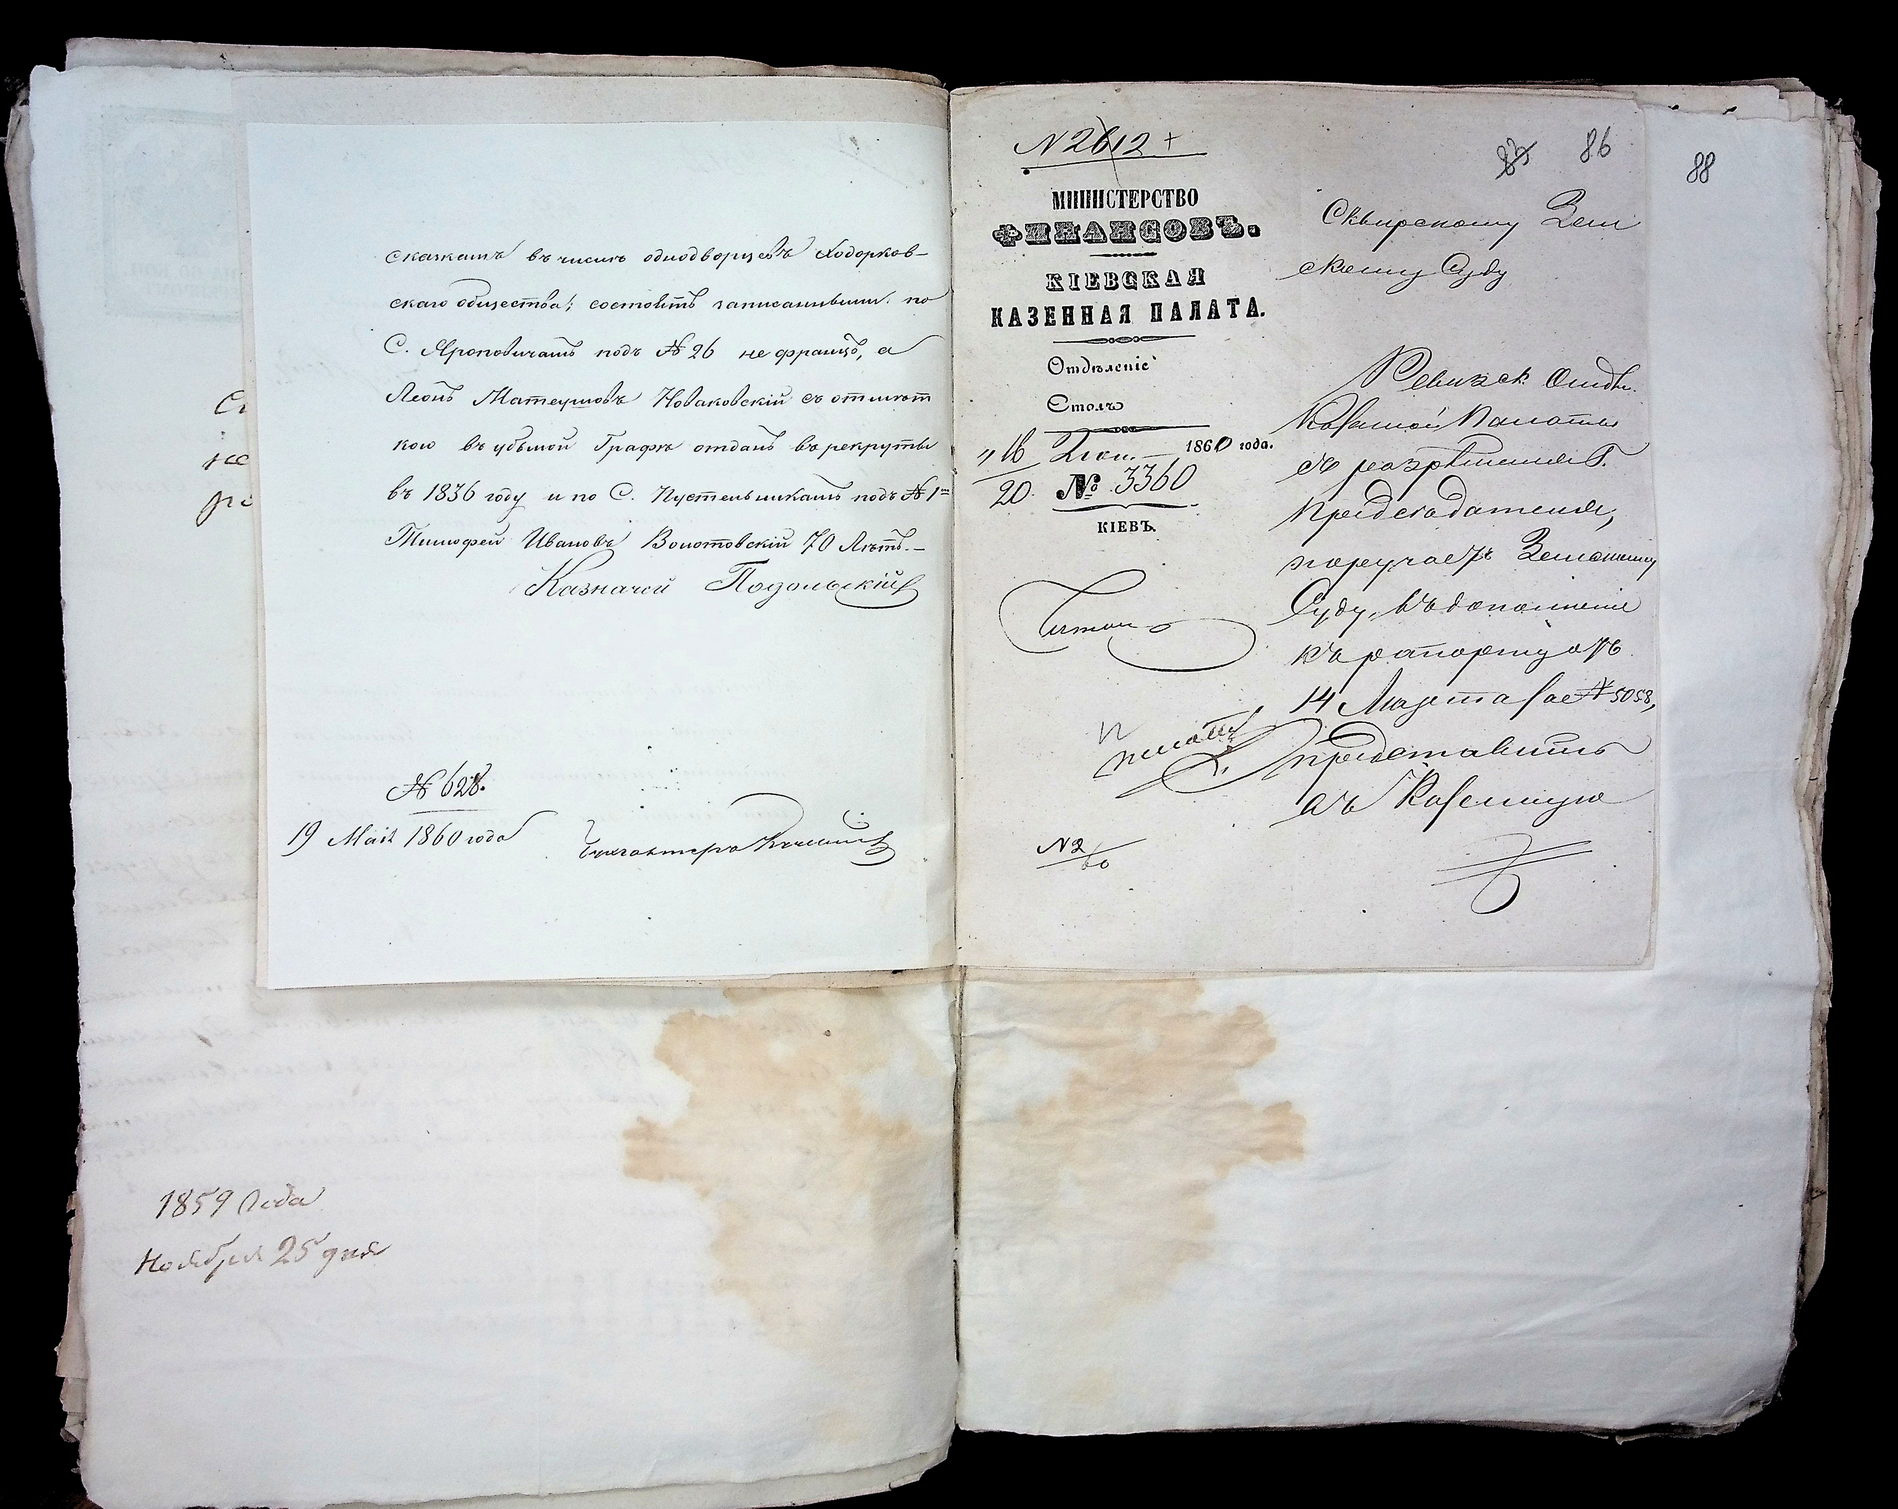 сказкамъ въ числѣ однодворцевъ Ходорков-
скаго общества; состоитъ записаннымъ: по
С. Яроповичамъ подъ № 26 не францъ, а
Леонъ Матеушовъ Новаковскій съ отмѣт
кою въ убылой Графѣ отданъ въ рекруты
въ 1836 году и по С. Пустельникамъ подъ № 1мъ
Тимофей Ивановъ Волотовскій 70 Лѣтъ.—
Казначей Подольскій
№ 628.
19 Мая 1860 года
Бухгалтеръ
1859 Года
Ноября 25 дня
N 2612 +
85 86
88
МИНИСТЕРСТВО
ФИНАНСОВЪ.
КІЕВСКАЯ
КАЗЕННАЯ ПАЛАТА.
Отдѣленіе
Столъ
„16 Іюн. 1860 года.
20. № 3360
КІЕВЪ.
N 2/60
Сквирскому Зем
скому Суду
Ревизск. Отдѣл.
Казенной Палаты
съ разрѣшенія Г.
Предсѣдателя,
поручаетъ Земскому
Суду, въ дополненіе
къ рапорту отъ
14 Марта за № 5058,
представить
въ Казенную